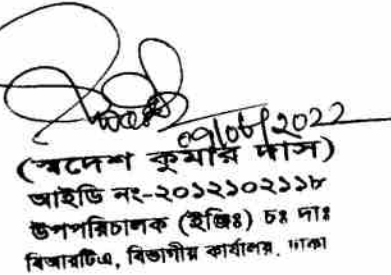 ০৭/০৮/2022
(স্বদেশ কুমার দাস)
আইডি নং-২০১২১০২১১৮
উপপরিচালক (ইঞ্জিঃ) চঃ দাঃ
বিআরটিএ, বিভাগীয় কার্যালয়, ঢাকা